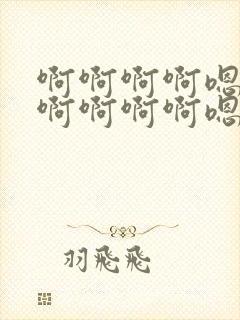 啊啊啊啊嗯
啊啊啊啊嗯
羽飛飛